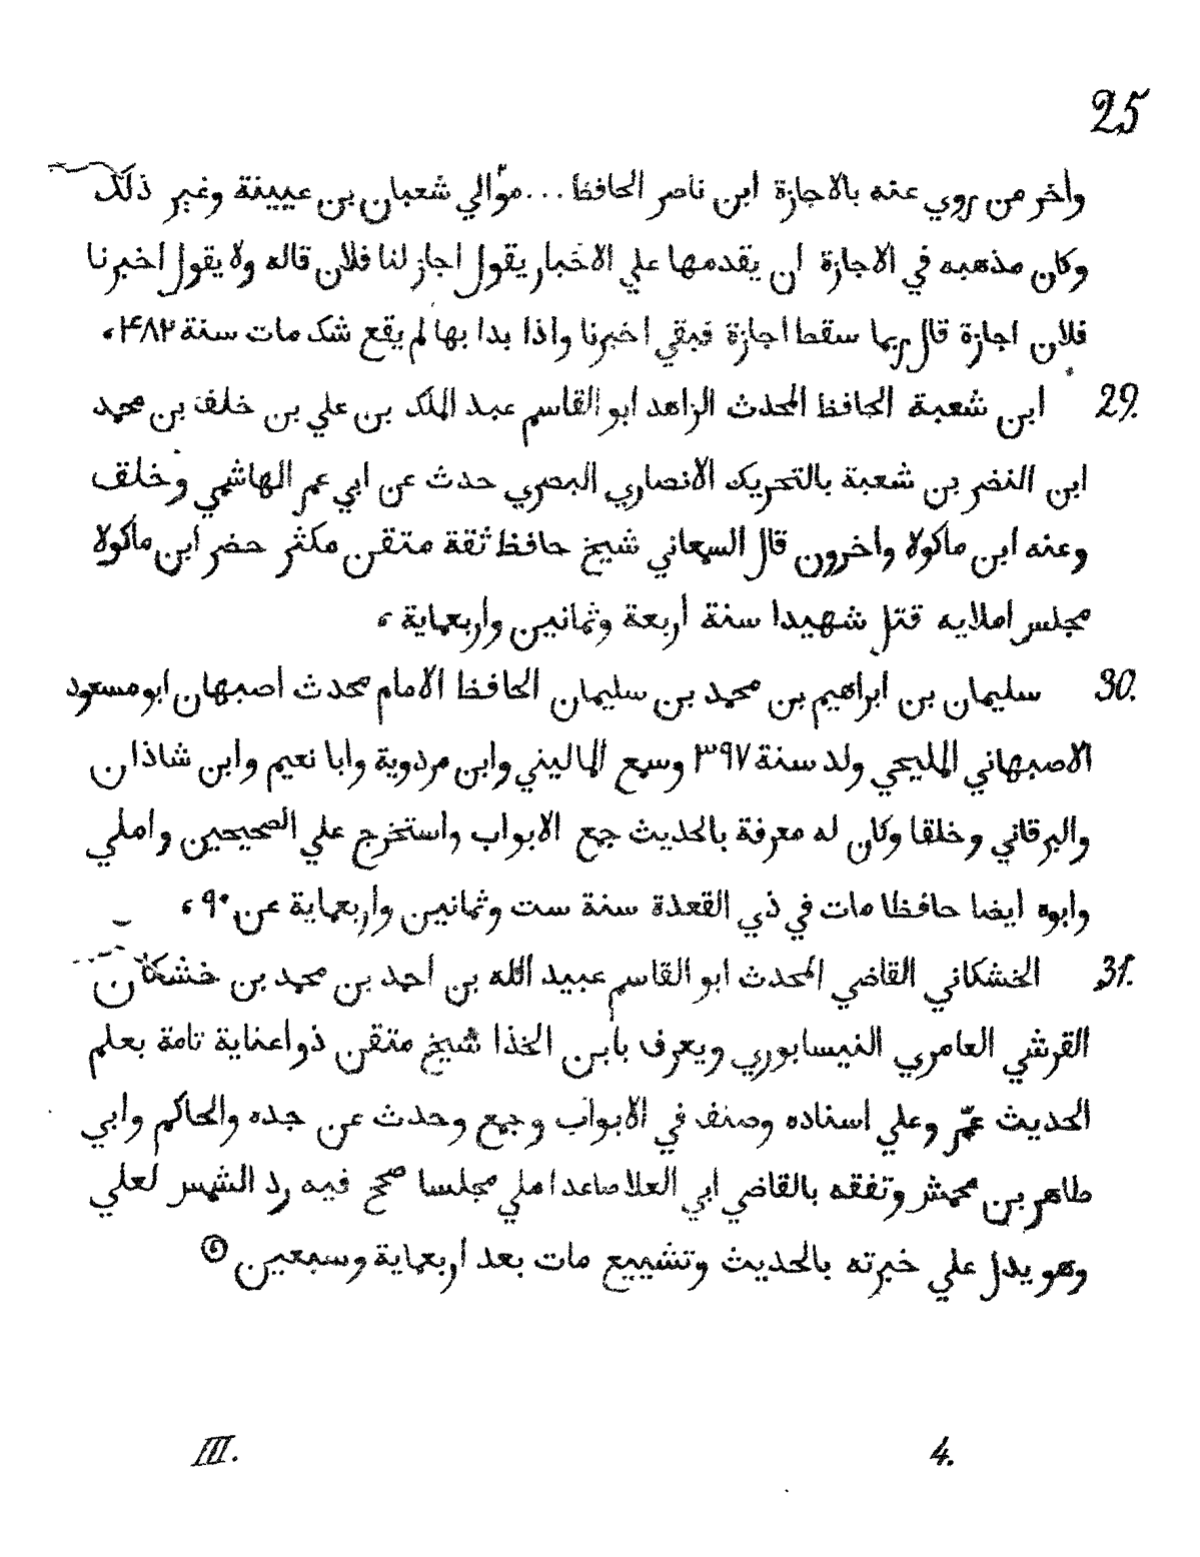 25
واخر من روي عنه بالاجازة ابن ناصر الحافظ... موّالي شعبان بن عيينة وغير ذلك
وكان مذهبه في الاجازة ان يقدمها علي الاخبار يقول اجاز لنا فلان قاله ولا يقول اخبرنا
فلان اجازة قال ربما سقط اجازة فبقي اخبرنا واذا بدا بها لم يقع شك مات سنة ۴۸۲،
29. ابن شعبة الحافظ المحدث الزاهد ابو القاسم عبد الملك بن علي بن خلف بن محمد
ابن النضر بن شعبة بالتحريك الانصاري البصري حدث عن ابي عمر الهاشمي وخلف
وعنه ابن ماكولا واخرون قال السمعاني شيخ حافظ ثقة متقن مكثر حضر ابن ماكولا
مجلس املايه قتل شهيدا سنة أربعة وثمانين واربعماية،
30. سليمان بن ابراهيم بن محمد بن سليمان الحافظ الامام محدث اصبهان ابو مسعود
الاصبهاني المليحي ولد سنة ۳۹۷ وسمع الماليني وابن مردوية وابا نعيم وابن شاذان
والبرقاني وخلقا وكان له معرفة بالحديث جمع الابواب واستخرج علي الصحيحين واملي
وابوه ايضا حافظا مات في ذي القعدة سنة ست وثمانين واربعماية عن ۹۰،
31. الخشكاني القاضي المحدث ابو القاسم عبيد الله بن احمد بن محمد بن خشكان
القرشي العامري النيسابوري ويعرف بابن الخذا شيخ متقن ذوا عناية تامة بعلم
الحديث عمّر وعلي اسناده وصنف في الابواب وجمع وحدث عن جده والحاكم وابي
طاهر بن محمش وتفقه بالقاضي ابي العلا صاعد املي مجلسا صحح فيه رد الشمس لعلي
وهو يدل علي خبرته بالحديث وتشييع مات بعد أربعماية وسبعين
III. 4.